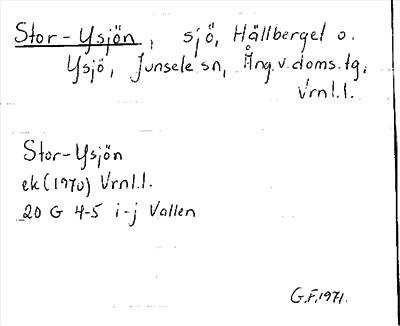 Stor-Ysjön, sjö, Hällberget o.
Ysjö, Junsele sn, Ång.v.doms.tg.
Vrnl.l.
Stor-Ysjön
ek(1970) Vrnl.l.
20 G 4-5 i-j Vallen
G.F.1971.